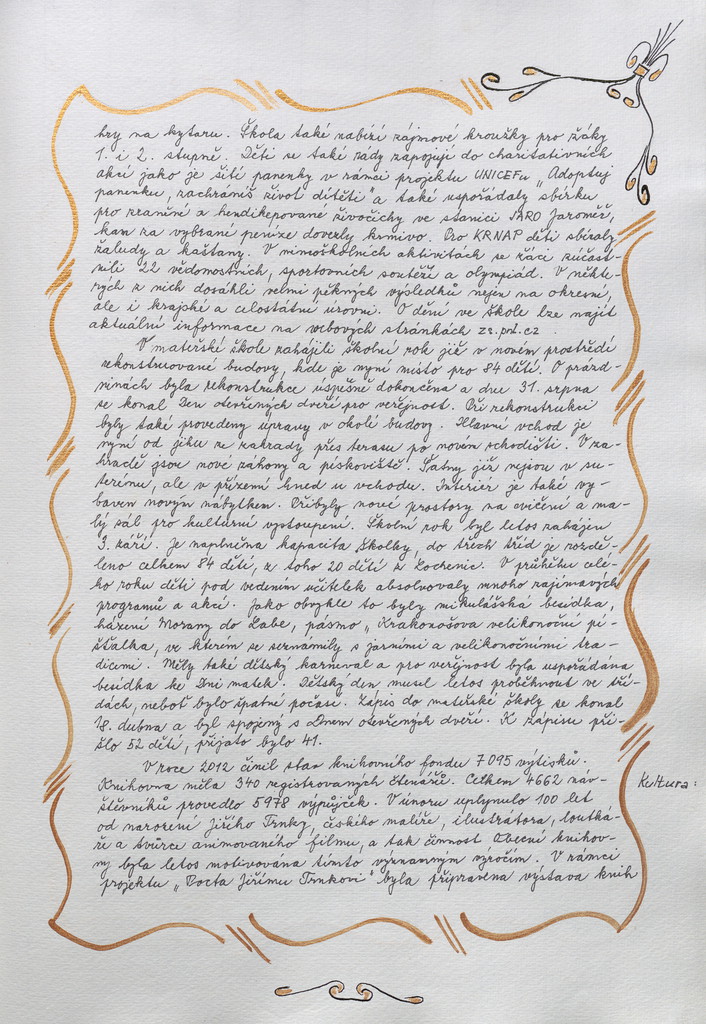 hry na kytaru. Škola také nabízí zájmové kroužky pro žáky
1. i 2. stupně. Děti se také rády zapojují do charitativních
akcí jako je šití panenky v rámci projektu UNICEFu „Adoptuj
panenku, zachráníš život dítěti" a také uspořádaly sbírku
pro zraněné a hendikepované živočichy ve stanici JARO Jaroměř,
kam za vybrané peníze dovezly krmivo. Pro KRNAP děti sbíraly
žaludy a kaštany. V mimoškolních aktivitách se žáci zúčast-
nili 22 vědomostních, sportovních soutěží a olympiád. V někte-
rých z nich dosáhli velmi pěkných výsledků nejen na okresní,
ale i krajské a celostátní úrovni. O dění ve škole lze najít
aktuální informace na webových stránkách zs.pnl.cz.
V mateřské škole zahájili školní rok již v novém prostředí
rekonstruované budovy, kde je nyní místo pro 84 dětí. O prázd-
ninách byla rekonstrukce úspěšně dokončena a dne 31. srpna
se konal Den otevřených dveří pro veřejnost. Při rekonstrukci
byly také provedeny úpravy v okolí budovy. Hlavní vchod je
nyní od jihu ze zahrady přes terasu po novém schodišti. V za-
hradě jsou nové záhony a pískoviště. Šatny již nejsou v su-
terénu, ale v přízemí hned u vchodu. Interiér je také vy-
baven novým nábytkem. Přibyly nové prostory na cvičení a ma-
lý sál pro kulturní vystoupení. Školní rok byl letos zahájen
3. září. Je naplněna kapacita školky, do třech tříd je rozdě-
leno celkem 84 dětí, z toho 20 dětí z Hořenic. V průběhu celé-
ho roku děti pod vedením učitelek absolvovaly mnoho zajímavých
programů a akcí. Jako obvykle to byly mikulášská besídka,
házení Morany do Labe, pásmo „Krakonošova velikonoční pí-
šťalka, ve kterém se seznámily s jarními a velikonočními tra-
dicemi. Měly také dětský karneval a pro veřejnost byla uspořádána
besídka ke Dni matek. Dětský den musel letos proběhnout ve tří-
dách, neboť bylo špatné počasí. Zápis do mateřské školy se konal
18. dubna a byl spojený s Dnem otevřených dveří. K zápisu při-
šlo 52 dětí, přijato bylo 41.
V roce 2012 činil stav knihovního fondu 7 095 výtisků.
Kultura:
Knihovna měla 340 registrovaných čtenářů. Celkem 4662 náv-
štěvníků provedlo 5978 výpůjček. V únoru uplynulo 100 let
od narození Jiřího Trnky, českého malíře, ilustrátora, loutká-
ře a tvůrce animovaného filmu, a tak činnost Obecní knihov-
ny byla letos motivována tímto významným výročím. V rámci
projektu „Pocta Jiřímu Trnkovi" byla připravena výstava knih